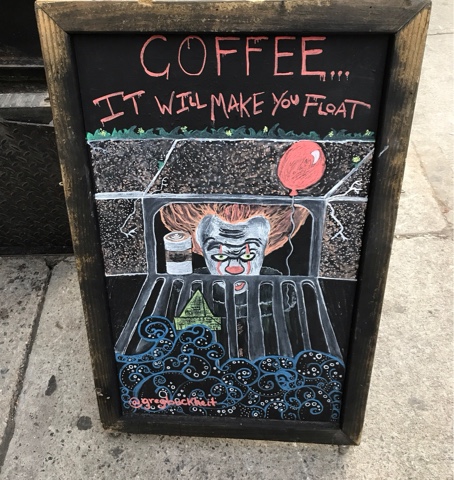 COFFEE...
IT WILL MAKE YOU FLOAT
@gregbeckheit